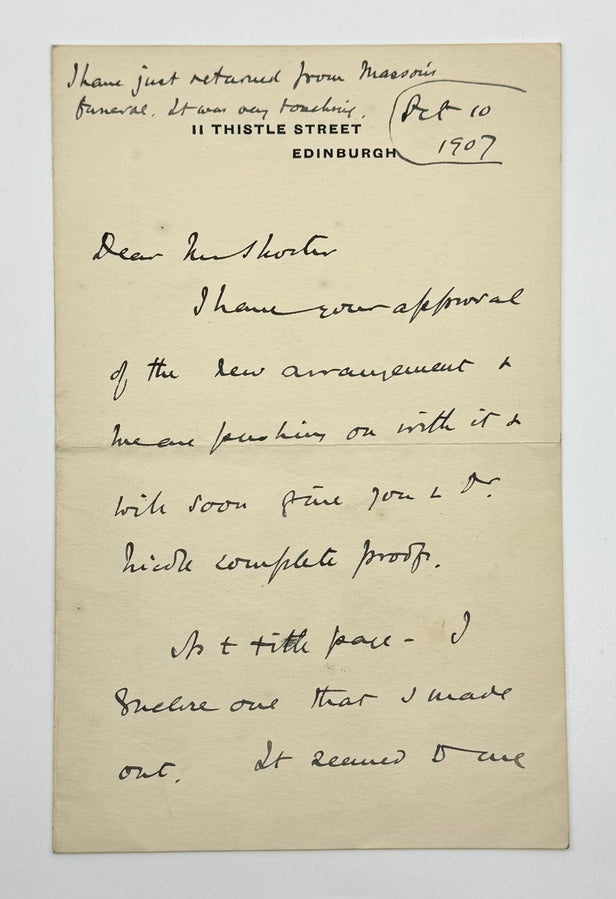 I have just returned from Masson's
funeral. It was very touching.
Oct 10
1907
11 THISTLE STREET
EDINBURGH
Dear Mr Shorter
I have your approval
of the new arrangement &
we are pushing on with it &
will soon give you & Dr.
Nicoll complete proofs.
As to title page - I
enclose one that I made
out. It seemed to me